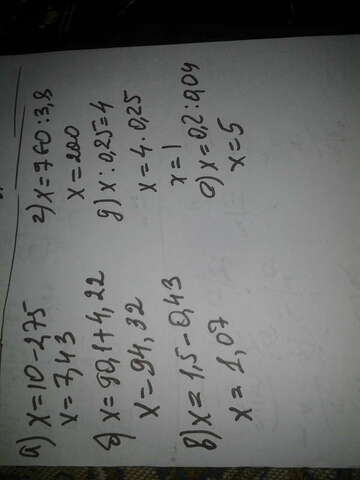 а) x=10-2,75
x=7,43
б) x=90,1+4,22
x=94,32
в) x=1,5-0,43
x=1,07
г) x=760:3,8
x=200
д) x:0,25=4
x=4·0,25
x=1
е) x=0,2:0,04
x=5